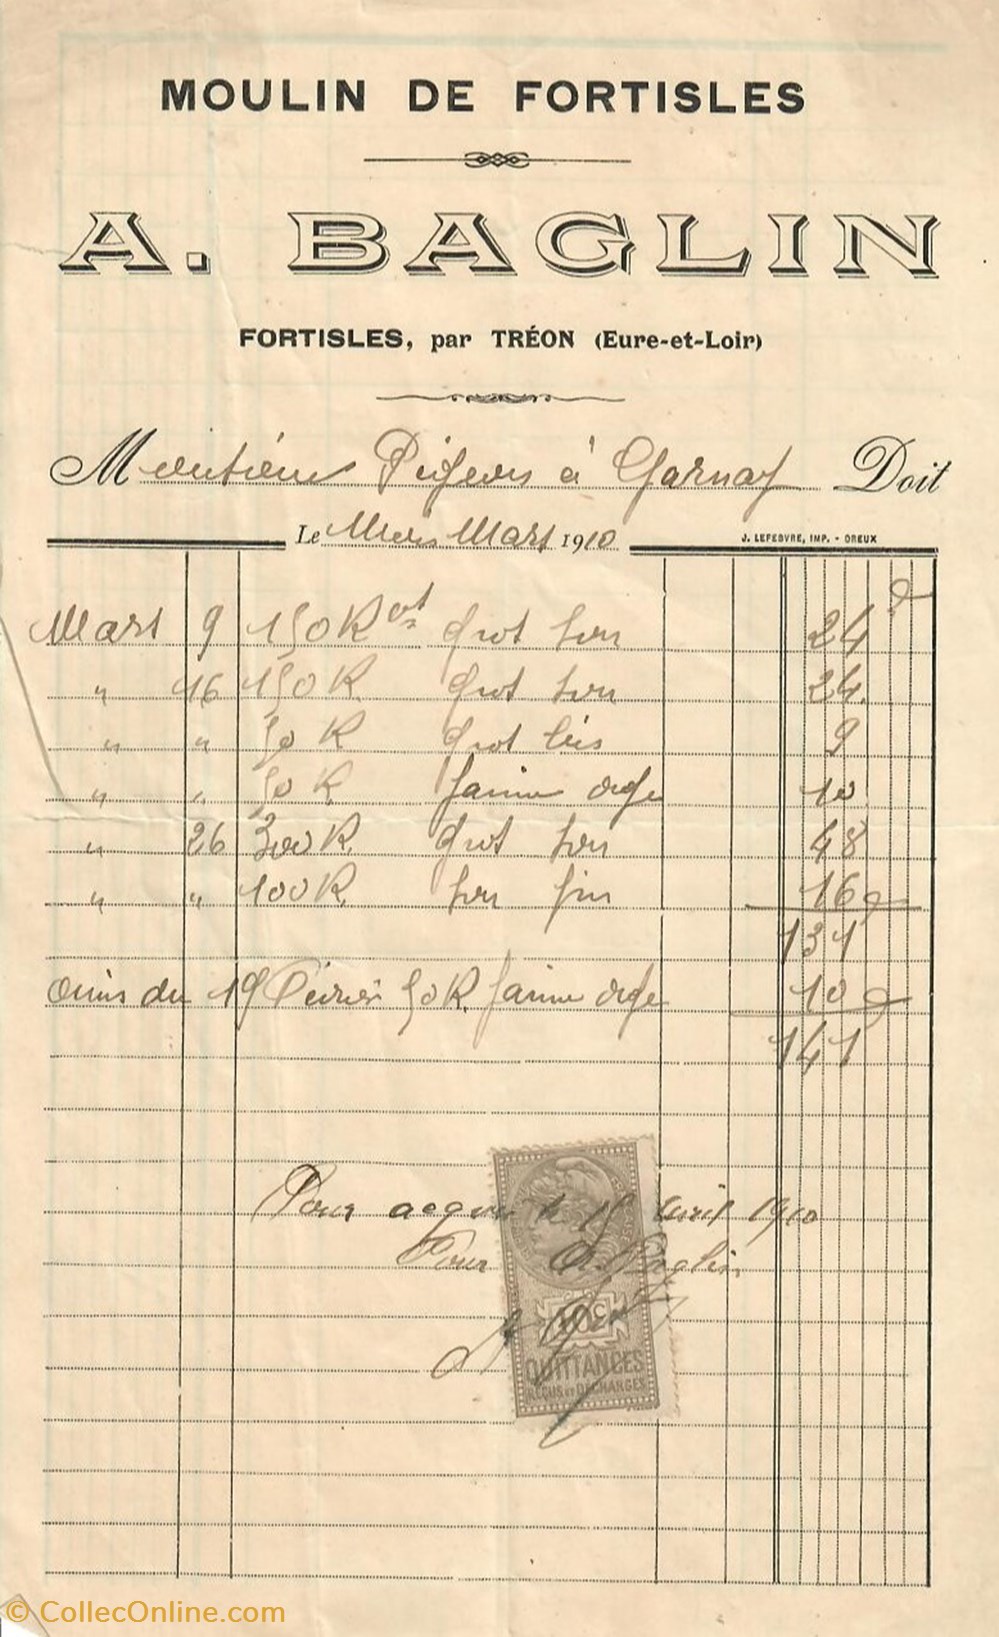 MOULIN DE FORTISLES
A. BAGLIN
FORTISLES, par TRÉON (Eure-et-Loir)
Monsieur Pigeon à Garnay Doit
Le Mois Mars 1910
J. LEFEBVRE, IMP. - DREUX
Mars 9 150 K Grot son 24
" 16 150 K Grot son 24
" " 50 K Grot bis 9
" " 50 K farine orge 10
" 26 300 K Grot son 48
" " 100 K son fin 16
131
Omis du 19 Février 50 K farine orge 10
141
Pour acquit le 15 Avril 1910
Pour A. Baglin
10c
QUITTANCES
REÇUS ET DÉCHARGES
© CollecOnline.com